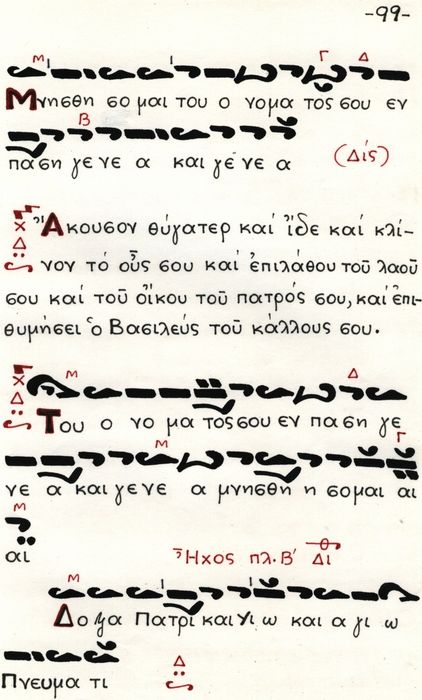 -99-
Μ Γ Δ
Μνησθη σο μαι του ο νομα τος σου εν
Β
παση γε νε α και γε νε α (Δίς)
Ἄκουσον θύγατερ καί ἴδε καί κλί-
νον τό οὖς σου καί ἐπιλάθου τοῦ λαοῦ
σου καί τοῦ οἴκου τοῦ πατρός σου, καί ἐπι-
θυμήσει ὁ Βασιλεύς τοῦ κάλλους σου.
Μ Δ
Του ο νο μα τος σου εν παση γε
Μ Γ
νε α και γε νε α μνησθη η σομαι αι
Μ
αι Ἦχος πλ. Β' Δι
Μ
Δο ξα Πατρι και Υι ω και α γι ω
Πνευμα τι Δ